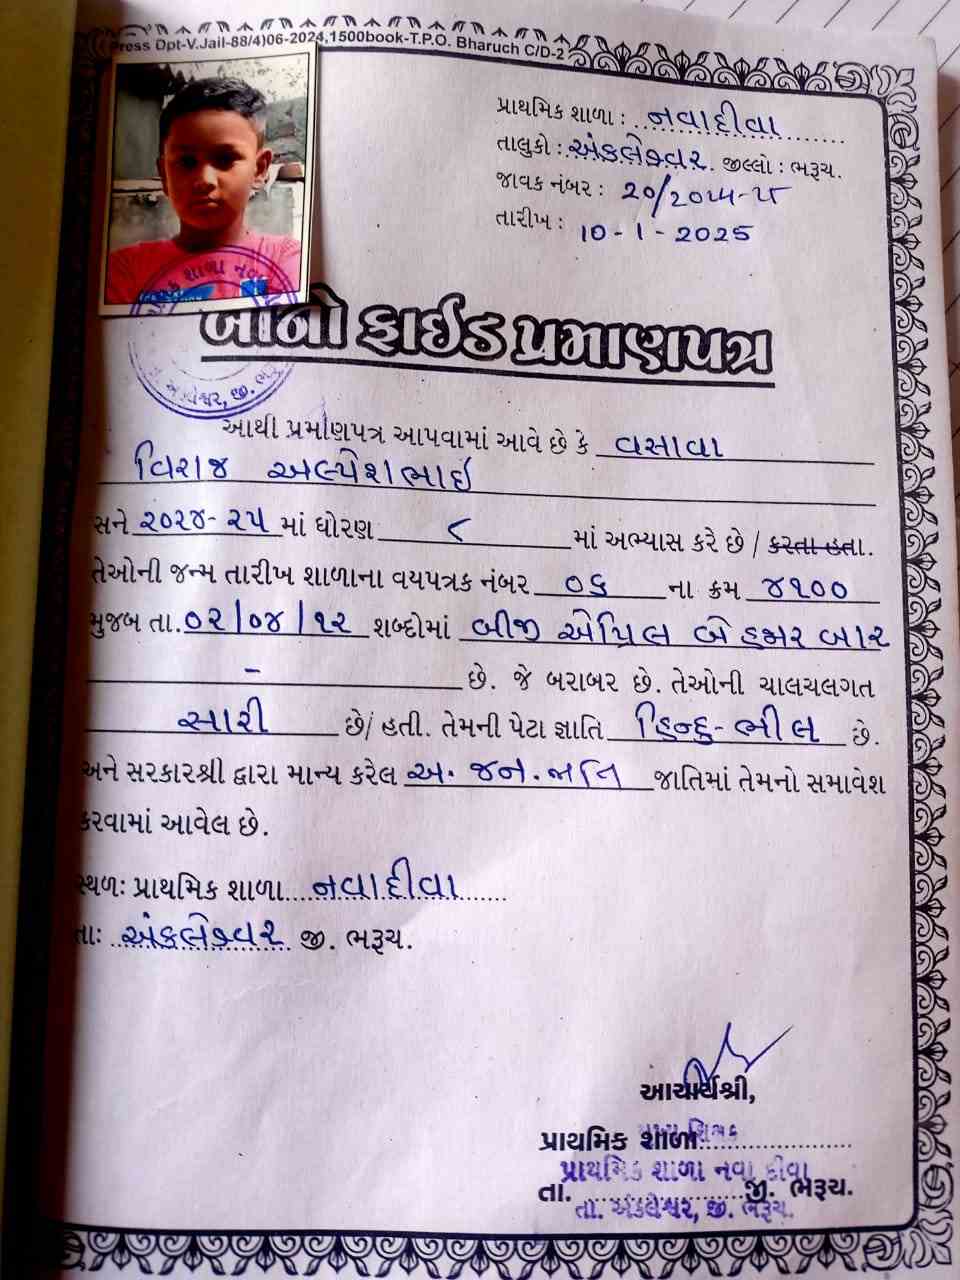 Press Dpt-V.Jail-88/4)06-2024,1500book-T.P.O. Bharuch C/D-2
પ્રાથમિક શાળા : નવાદીવા
તાલુકો : અંકલેશ્વર. જીલ્લો : ભરૂચ.
જાવક નંબર : 20/2024-25
તારીખ : 10-1-2025
બોનો ફાઈડ પ્રમાણપત્ર
આથી પ્રમાણપત્ર આપવામાં આવે છે કે વસાવા
વિરાજ અલ્પેશભાઈ
સને ૨૦૨૪-૨૫ માં ધોરણ ૮ માં અભ્યાસ કરે છે / કરતા હતા.
તેઓની જન્મ તારીખ શાળાના વયપત્રક નંબર ૦૬ ના ક્રમ ૪૧૦૦
મુજબ તા. ૦૨/૦૪/૧૨ શબ્દોમાં બીજી એપ્રિલ બે હજાર બાર
- છે. જે બરાબર છે. તેઓની ચાલચલગત
સારી છે/ હતી. તેમની પેટા જ્ઞાતિ હિન્દુ-ભીલ છે.
અને સરકારશ્રી દ્વારા માન્ય કરેલ અ. જન. જાતિ જાતિમાં તેમનો સમાવેશ
કરવામાં આવેલ છે.
સ્થળઃ પ્રાથમિક શાળા નવાદીવા
તાઃ અંકલેશ્વર જી. ભરૂચ.
આચાર્યશ્રી,
પ્રાથમિક શાળા
મુખ્ય શિક્ષક
પ્રાથમિક શાળા નવા દીવા
તા. જી. ભરૂચ.
તા. અંકલેશ્વર, જી. ભરૂચ.
શાળા નવા
અંકલેશ્વર, જી. ભરૂચ